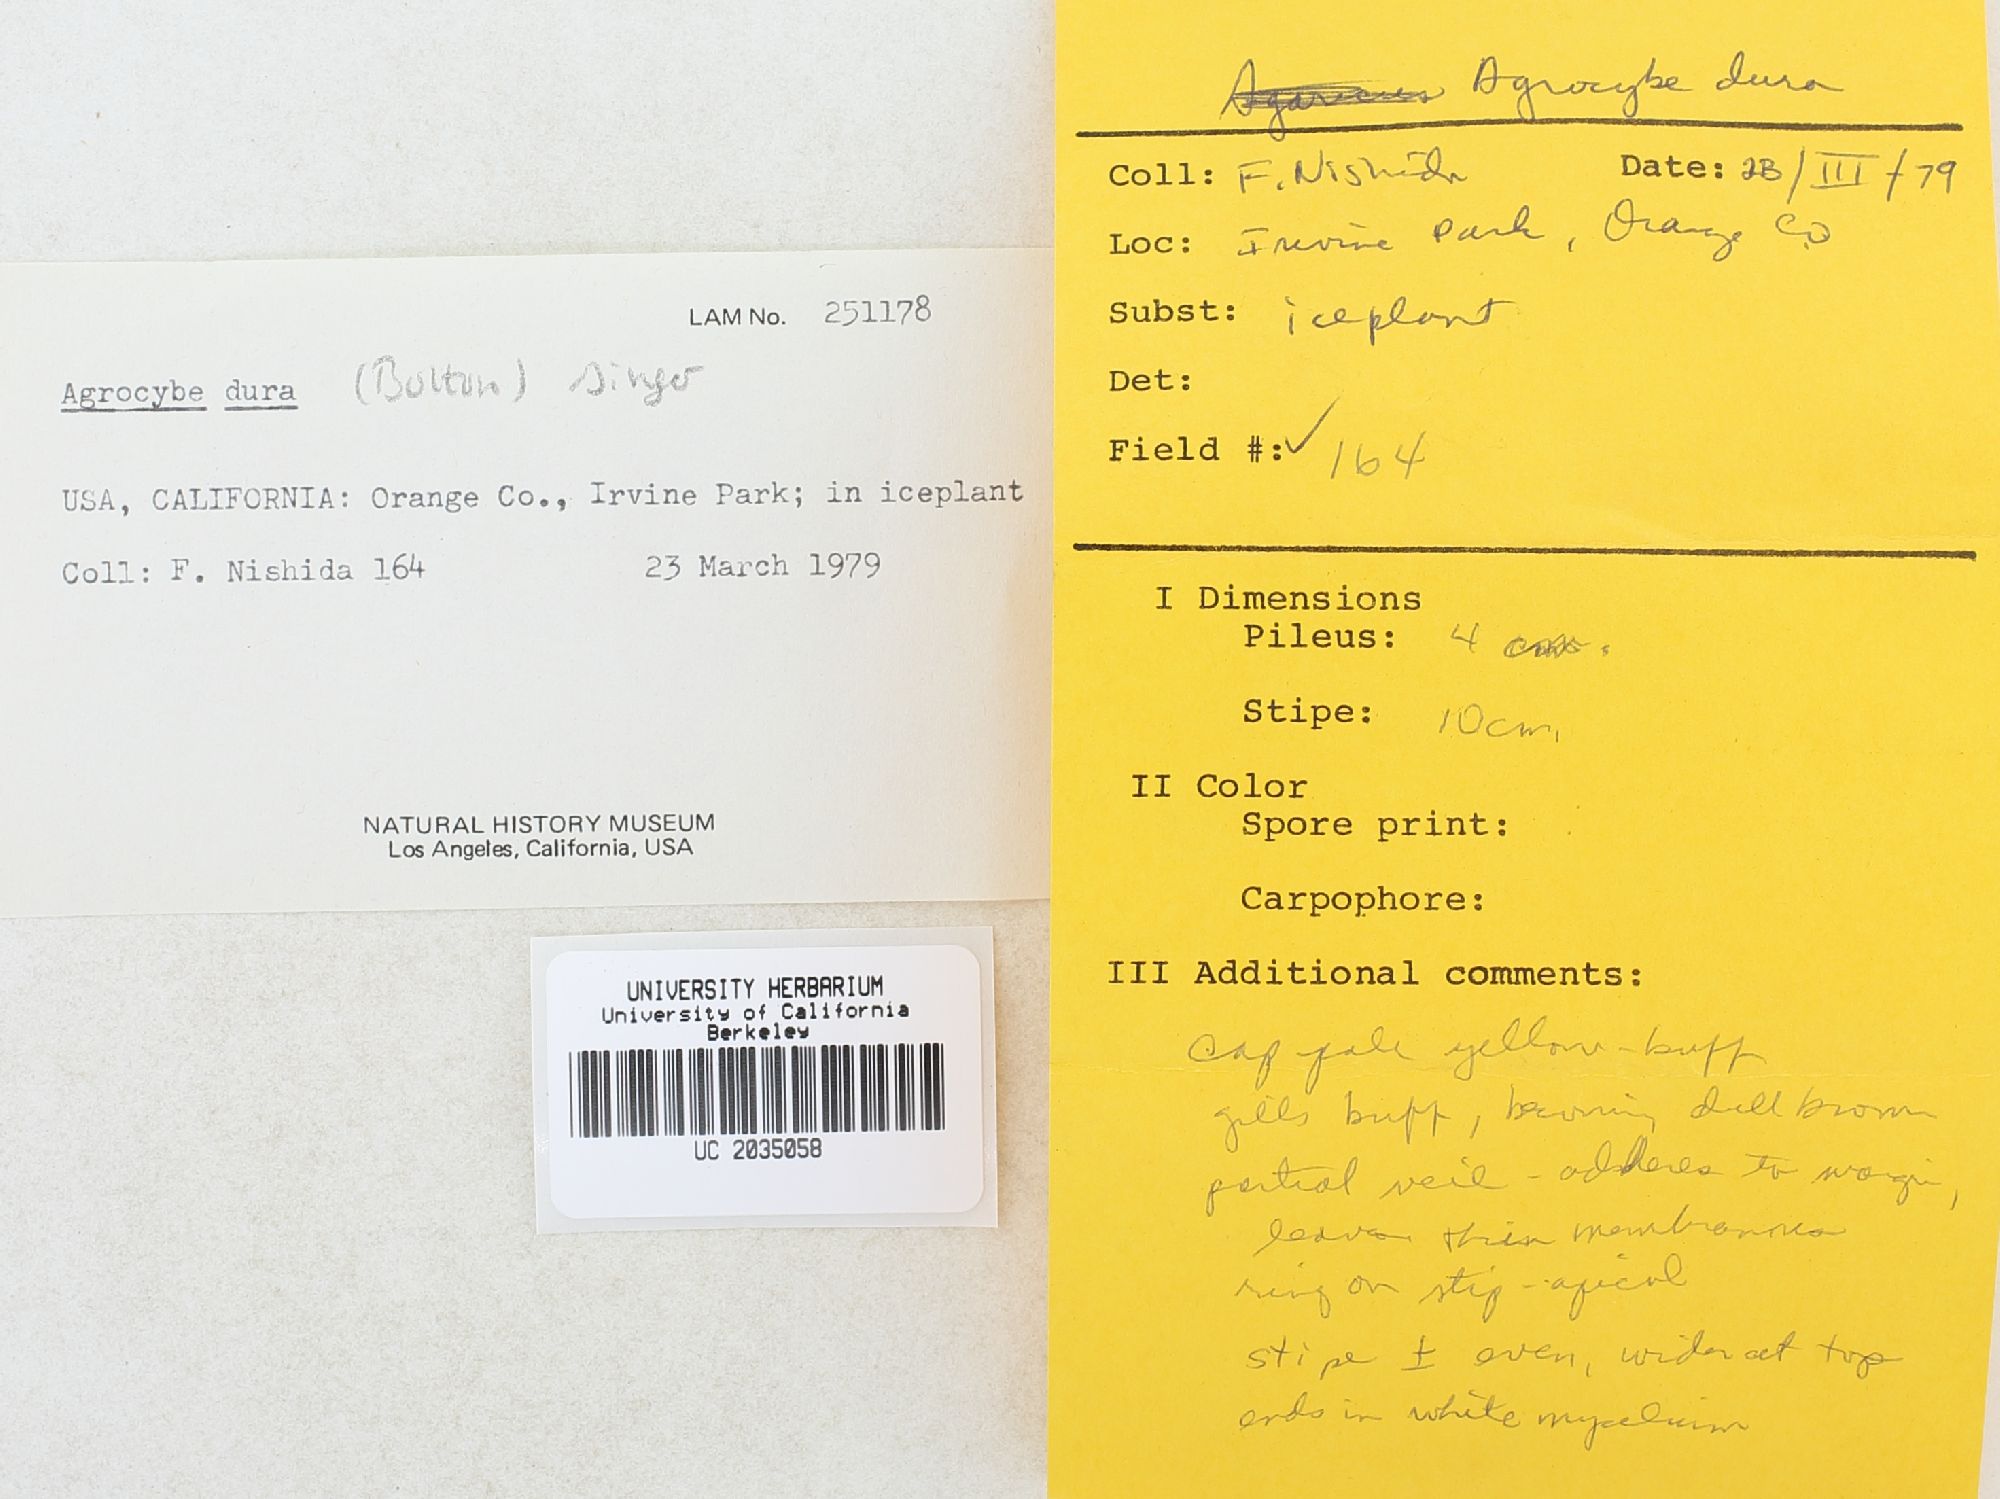 LAM No. 251178
Agrocybe dura (Bolton) Singer
USA, CALIFORNIA: Orange Co., Irvine Park; in iceplant
Coll: F. Nishida 164 23 March 1979
NATURAL HISTORY MUSEUM
Los Angeles, California, USA
UNIVERSITY HERBARIUM
University of California
Berkeley
UC 2035058
Agaricus Agrocybe dura
Coll: F. Nishida Date: 23/III/79
Loc: Irvine Park, Orange Co
Subst: iceplant
Det:
Field #: ✓ 164
I Dimensions
Pileus: 4 cm.
Stipe: 10cm.
II Color
Spore print:
Carpophore:
III Additional comments:
Cap pale yellow-buff
gills buff, becoming dull brown
partial veil - adheres to margin,
leaves thin membranous
ring on stip - apical
stipe ± even, wider at top
ends in white mycelium